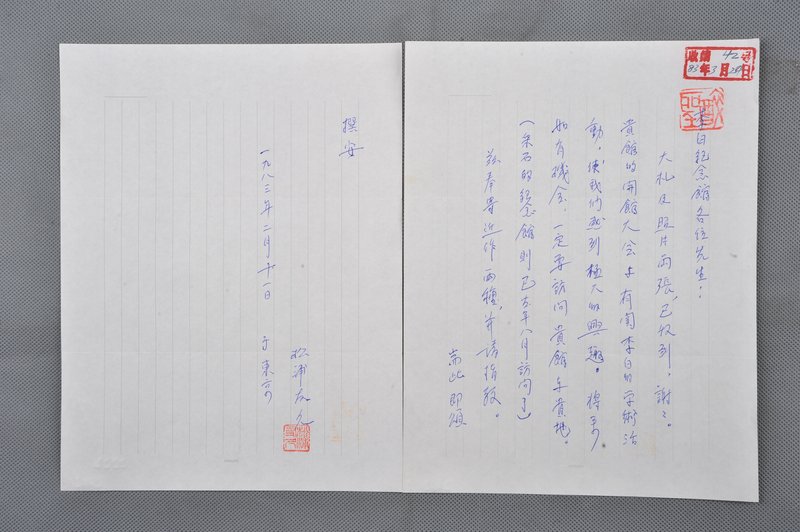 收 42号
83年3月29日
李白纪念館各位先生：
大札及照片両張，已收到，謝々。
貴館的開館大会与有関李白的学術活
動，使我们感到極大的興趣。将来
如有機会，一定要訪问貴館与貴地。
（采石的纪念館則已去年八月訪问了）
兹奉寄近作両種，并請指教。
耑此即頌
撰安
一九八三年二月十一日 于東京
松浦友久